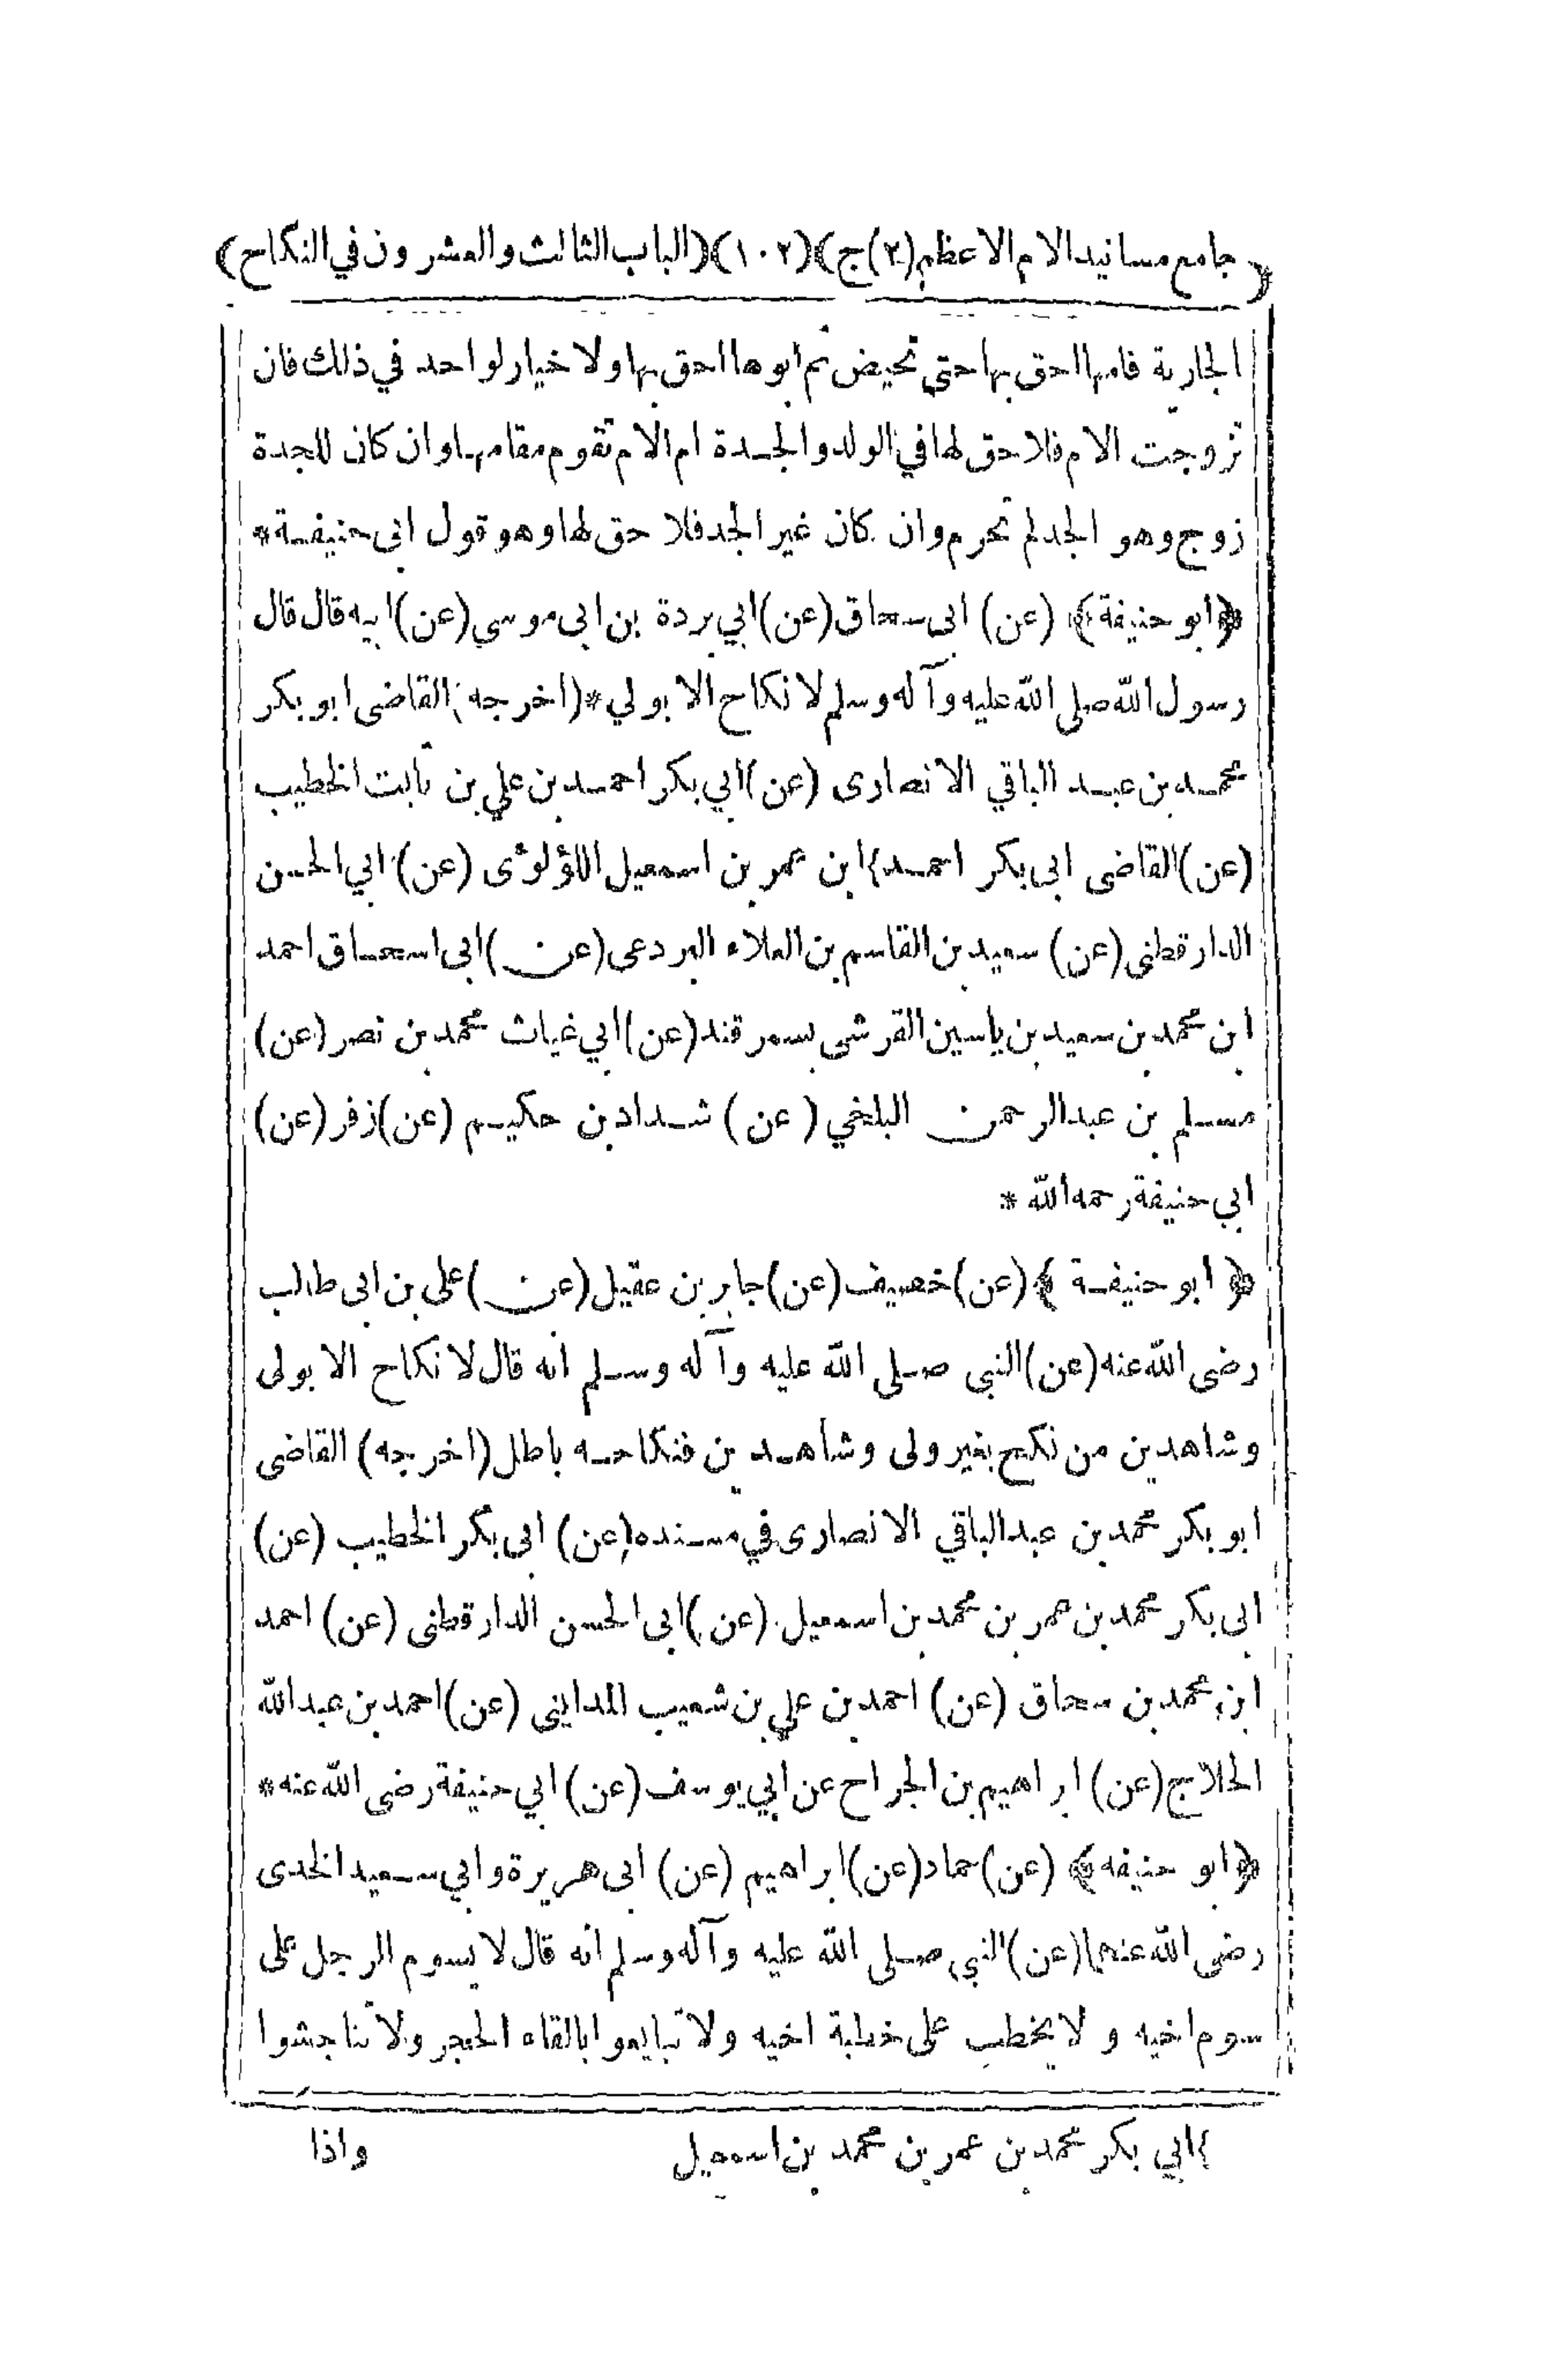 ﴿جامع مسانيد الامام الاعظم (ج٢)﴾ (١٠٢) ﴿الباب الثالث والعشرون في النكاح﴾
الجارية فامها احق بها حتى تحيض ثم ابوها احق بها ولا خيار لواحد في ذلك فان
تزوجت الام فلا حق لها في الولد والجدة ام الام تقوم مقامها وان كان للجدة
زوج وهو الجد لم تحرم وان كان غير الجد فلا حق لها وهو قول ابى حنيفة *
﴿ابو حنيفة﴾ (عن) ابى سحاق (عن) ابي بردة بن ابى موسي (عن) ابيه قال قال
رسول الله صلى الله عليه وآله وسلم لا نكاح الا بولي * (اخرجه) القاضى ابو بكر
محمد بن عبد الباقي الانصارى (عن) ابي بكر احمد بن علي بن ثابت الخطيب
(عن) القاضى ابى بكر احمد} ابن عمر بن اسمعيل اللؤلؤى (عن) ابي الحسن
الدارقطنى (عن) سعيد بن القاسم بن العلاء البردعى (عن) ابى اسحاق احمد
ابن محمد بن سعيد بن ياسين القرشى بسمرقند (عن) ابي غياث محمد بن نصر (عن)
مسلم بن عبدالرحمن البلخي (عن) شداد بن حكيم (عن) زفر (عن)
ابي حنيفة رحمه الله *
﴿ابو حنيفة﴾ (عن) خصيف (عن) جابر بن عقيل (عن) على بن ابى طالب
رضى الله عنه (عن) النبى صلى الله عليه وآله وسلم انه قال لا نكاح الا بولى
وشاهدين من نكح بغير ولى وشاهدين فنكاحه باطل (اخرجه) القاضى
ابو بكر محمد بن عبدالباقي الانصارى في مسنده (عن) ابى بكر الخطيب (عن)
ابى بكر محمد بن عمر بن محمد بن اسمعيل (عن) ابى الحسن الدارقطنى (عن) احمد
ابن محمد بن سحاق (عن) احمد بن علي بن شعيب المداينى (عن) احمد بن عبدالله
الحلاج (عن) ابراهيم بن الجراح عن ابي يوسف (عن) ابي حنيفة رضى الله عنه *
﴿ابو حنيفه﴾ (عن) حماد (عن) ابراهيم (عن) ابى هريرة وابي سعيد الخدى
رضى الله عنهما (عن) النبي صلى الله عليه وآله وسلم انه قال لا يسوم الرجل على
سوم اخيه و لا يخطب على خطبة اخيه ولا تبايعوا بالقاء الحجر ولا تناجشوا
} ابي بكر محمد بن عمر بن محمد بن اسمعيل
واذا